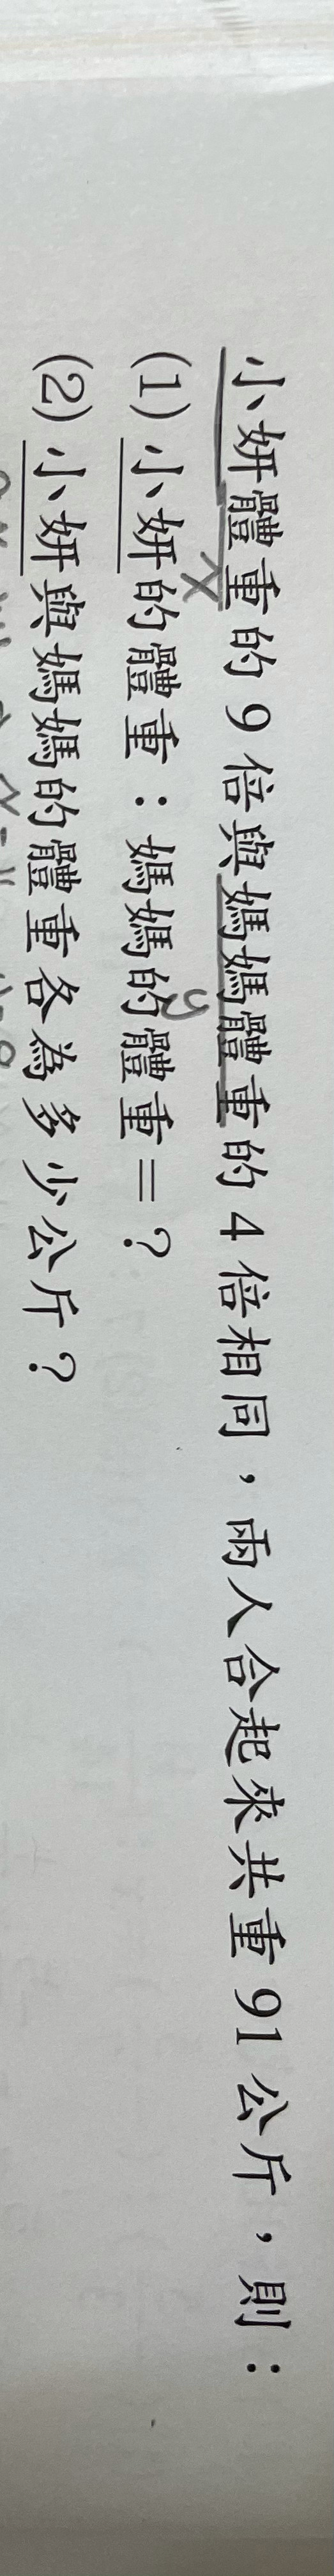 小妍體重的9倍與媽媽體重的4倍相同，兩人合起來共重91公斤，則：
x y
(1)小妍的體重：媽媽的體重＝？
(2)小妍與媽媽的體重各為多少公斤？